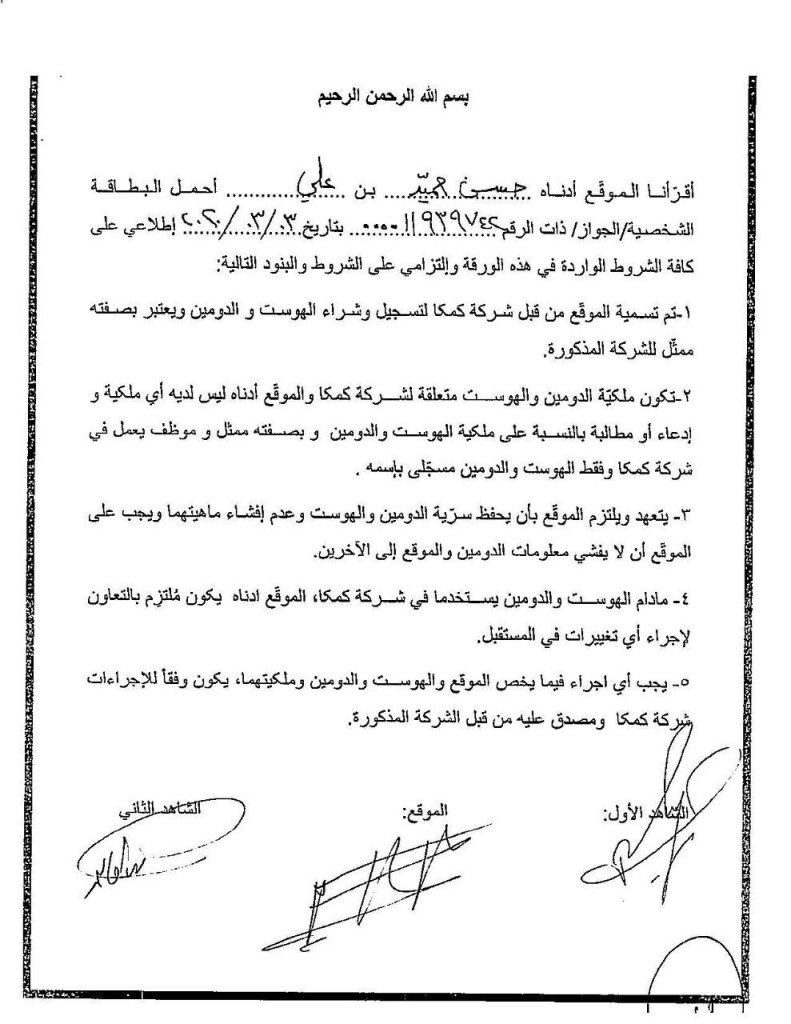 بسم الله الرحمن الرحيم
أقرّ أنا الموقّع أدناه حسين حميد بن علي أحمل البطاقة
الشخصية/الجواز/ ذات الرقم بتاريخ ٢٠٢٠/٠٣/٠٣ إطلاعي على
كافة الشروط الواردة في هذه الورقة وإلتزامي على الشروط والبنود التالية:
١-تم تسمية الموقّع من قبل شركة كمكا لتسجيل وشراء الهوست و الدومين ويعتبر بصفته
ممثّل للشركة المذكورة.
٢-تكون ملكيّة الدومين والهوست متعلقة لشركة كمكا والموقّع أدناه ليس لديه أي ملكية و
إدعاء أو مطالبة بالنسبة على ملكية الهوست والدومين و بصفته ممثل و موظف يعمل في
شركة كمكا وفقط الهوست والدومين مسجّلى بإسمه .
٣- يتعهد ويلتزم الموقّع بأن يحفظ سرّية الدومين والهوست وعدم إفشاء ماهيتهما ويجب على
الموقّع أن لا يفشي معلومات الدومين والموقع إلى الآخرين.
٤- مادام الهوست والدومين يستخدما في شركة كمكا، الموقّع ادناه يكون مُلتزِم بالتعاون
لإجراء أي تغييرات في المستقبل.
٥- يجب أي اجراء فيما يخص الموقع والهوست والدومين وملكيتهما، يكون وفقاً للإجراءات
شركة كمكا ومصدق عليه من قبل الشركة المذكورة.
الشاهد الأول:
الموقع:
الشاهد الثاني